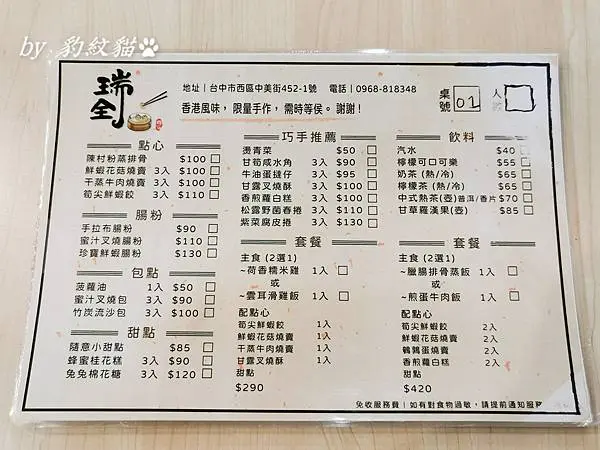 by 豹紋貓
瑞全
地址｜台中市西區中美街452-1號　電話｜0968-818348
香港風味，限量手作，需時等侯。謝謝！
桌號 01 人
點心
陳村粉蒸排骨 $100
鮮蝦花菇燒賣 3入 $100
干蒸牛肉燒賣 3入 $100
筍尖鮮蝦餃 3入 $110
腸粉
手拉布腸粉 $90
蜜汁叉燒腸粉 $110
珍寶鮮蝦腸粉 $130
包點
菠蘿油 1入 $50
蜜汁叉燒包 3入 $90
竹炭流沙包 3入 $100
甜點
隨意小甜點 $85
蜂蜜桂花糕 3入 $90
兔兔棉花糖 3入 $120
巧手推薦
燙青菜 $50
甘筍咸水角 3入 $90
牛油蛋撻仔 3入 $95
甘露叉燒酥 3入 $100
香煎蘿白糕 3入 $100
松露野菌春捲 3入 $110
紫菜腐皮捲 3入 $130
套餐
主食 (2選1)
~荷香糯米雞 1入
或
~雲耳滑雞飯 1入
配點心
筍尖鮮蝦餃 1入
鮮蝦花菇燒賣 1入
干蒸牛肉燒賣 1入
甘露叉燒酥 1入
甜點
$290
飲料
汽水 $40
檸檬可口可樂 $55
奶茶 (熱/冷) $65
檸檬茶 (熱/冷) $65
中式熱茶(壺)普洱/香片 $70
甘草羅漢果(壺) $85
套餐
主食 (2選1)
~臘腸排骨蒸飯 1入
或
~煎蛋牛肉飯 1入
配點心
筍尖鮮蝦餃 2入
鮮蝦花菇燒賣 2入
鵪鶉蛋燒賣 2入
香煎蘿白糕 2入
甜點
$420
免收服務費｜如有對食物過敏，請提前通知服務